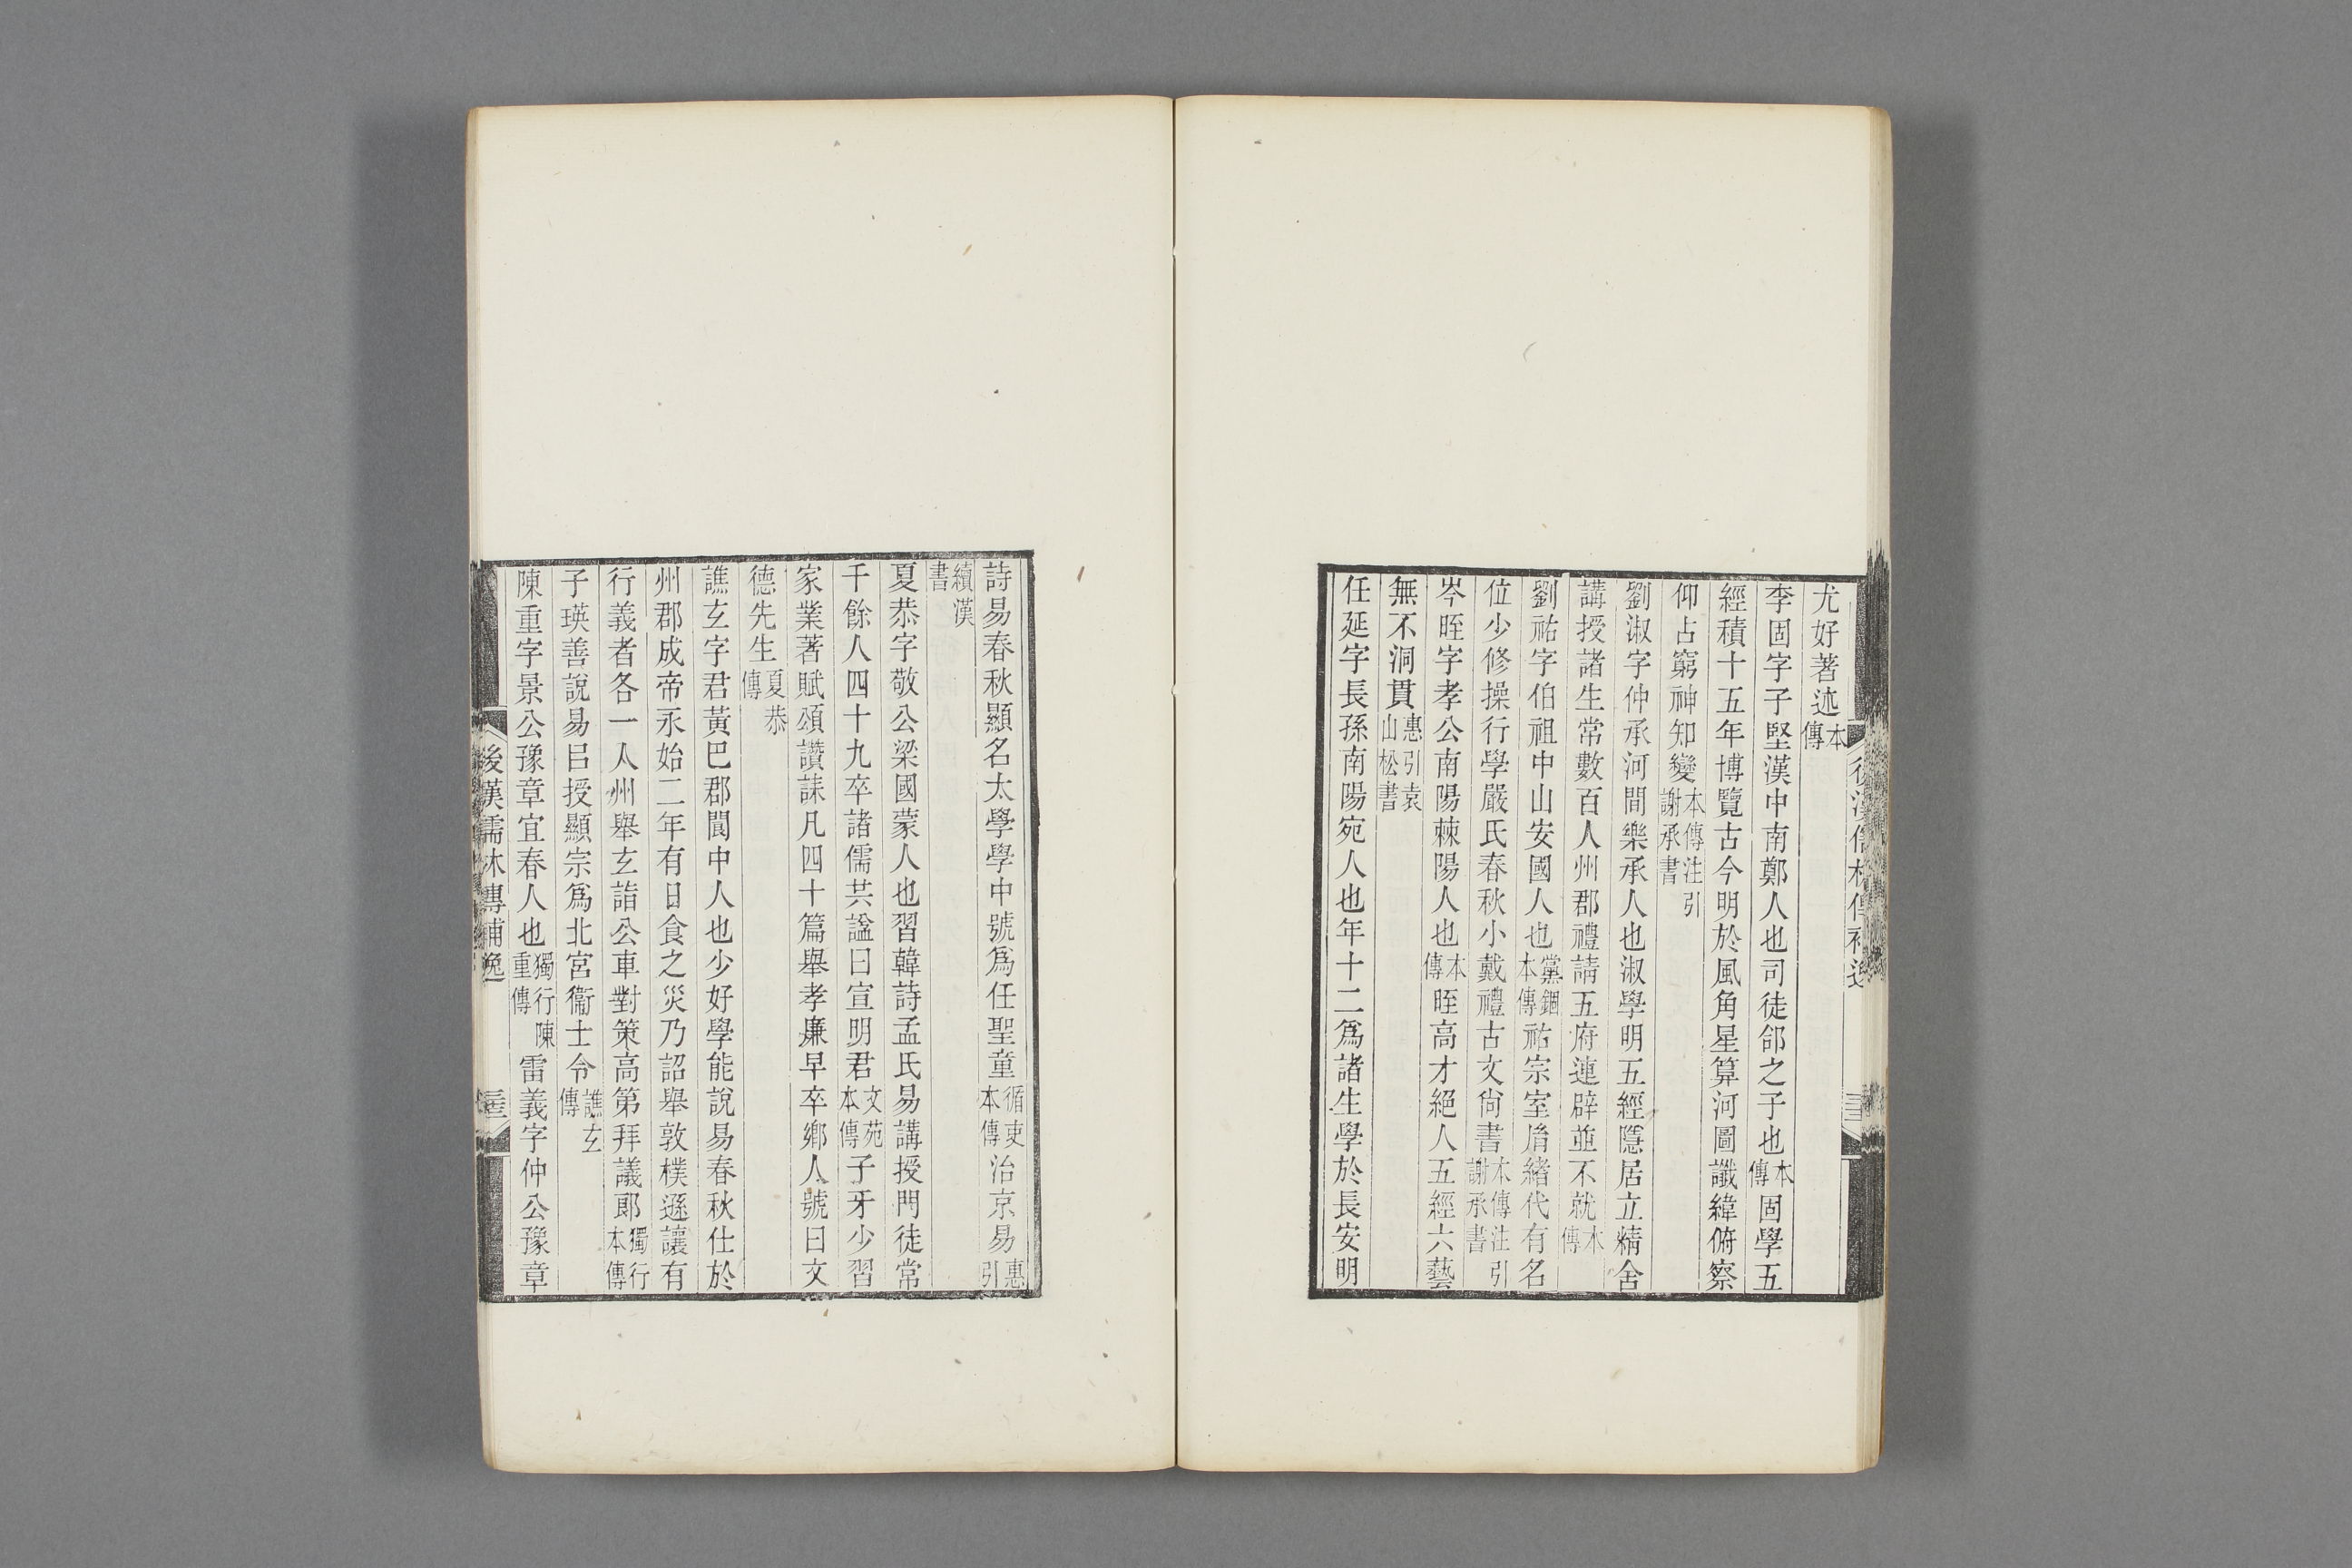 尤好著述本傳
李固字子堅漢中南鄭人也司徒郃之子也本傳固學五
經積十五年博覽古今明於風角星算河圖讖緯俯察
仰占窮神知變本傳注引謝承書
劉淑字仲承河間樂承人也淑學明五經隱居立精舍
講授諸生常數百人州郡禮請五府連辟並不就本傳
劉祐字伯祖中山安國人也黨錮本傳祐宗室胤緒代有名
位少修操行學嚴氏春秋小戴禮古文尙書本傳注引謝承書
岑晊字孝公南陽棘陽人也本傳晊高才絕人五經六藝
無不洞貫惠引袁山松書
任延字長孫南陽宛人也年十二爲諸生學於長安明
詩易春秋顯名太學學中號爲任聖童循吏本傳治京易惠引
續漢書
夏恭字敬公梁國蒙人也習韓詩孟氏易講授門徒常
千餘人四十九卒諸儒共諡曰宣明君文苑本傳子牙少習
家業著賦頌讚誄凡四十篇舉孝廉早卒鄉人號曰文
德先生夏恭傳
譙玄字君黃巴郡閬中人也少好學能說易春秋仕於
州郡成帝永始二年有日食之災乃詔舉敦樸遜讓有
行義者各一人州舉玄詣公車對策高第拜議郞獨行本傳
子瑛善說易㠯授顯宗爲北宮衞士令譙玄傳
陳重字景公豫章宜春人也獨行陳重傳雷義字仲公豫章
後漢儒林傳補逸